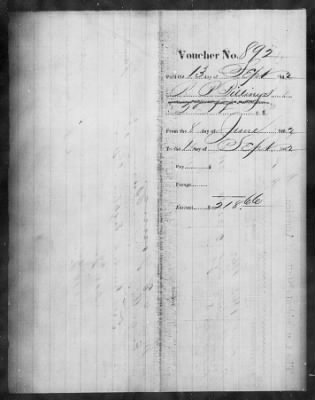 Voucher No. 892
Paid the 13 day of Sept 1862
P. Pillings
U. S.
From the 8 day of June 1862
To the 1 day of Sept 1862
Pay $
Forage
Amount $218.66